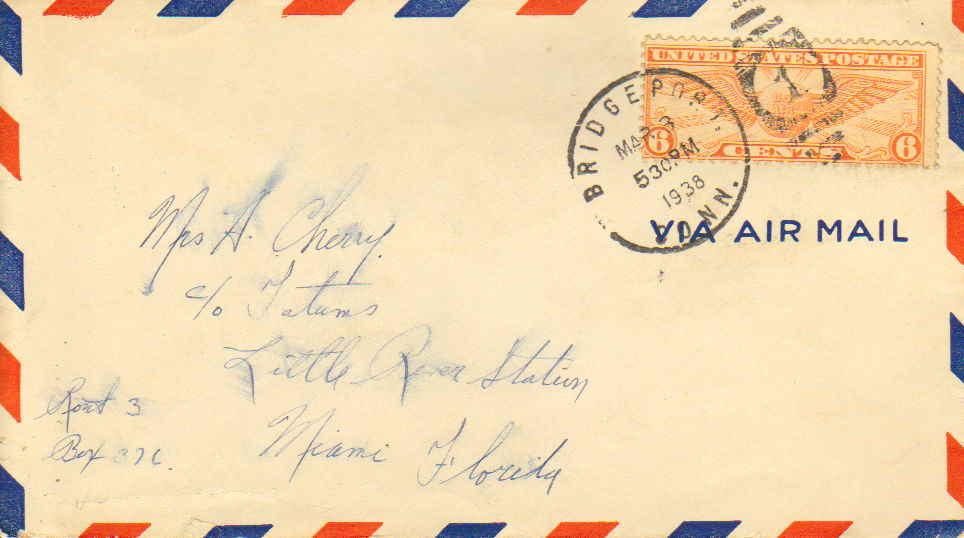 UNITED STATES POSTAGE
6 CENTS 6
1
BRIDGEPORT,
MAR 3
5 30 PM
1938
CONN.
VIA AIR MAIL
Mrs A. Cherry
c/o Tatums
Little River Station
Miami Florida
Rout 3
Box